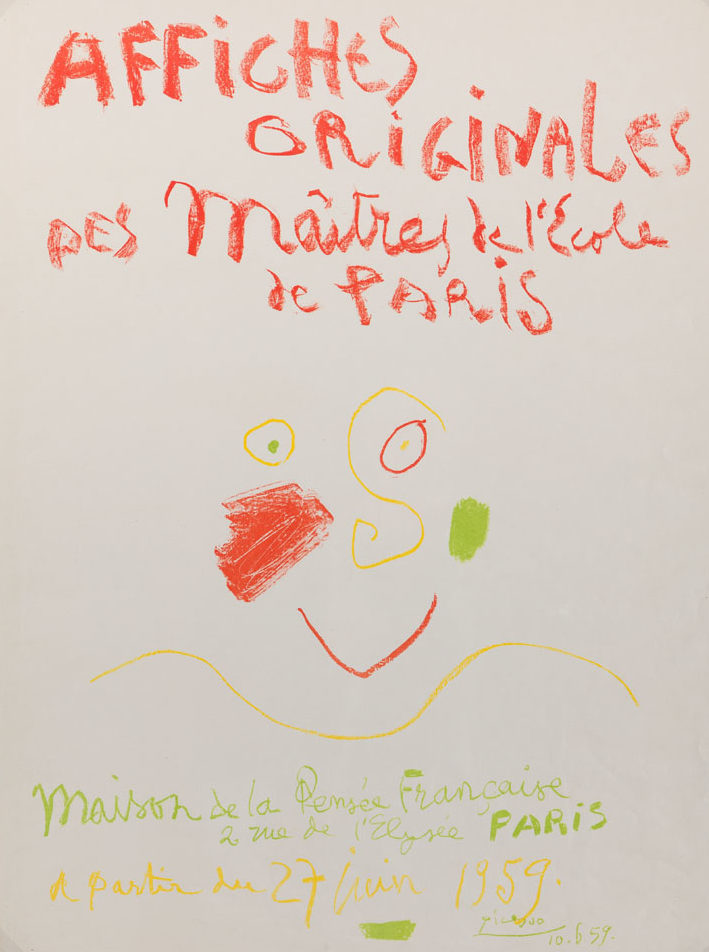 AFFiCHES
ORiGiNALES
DES Maîtres de l'École
de PARiS
Maison de la Pensée Française
2 rue de l'Elysée PARiS
à partir du 27 juin 1959.
Picasso
10.6.59.